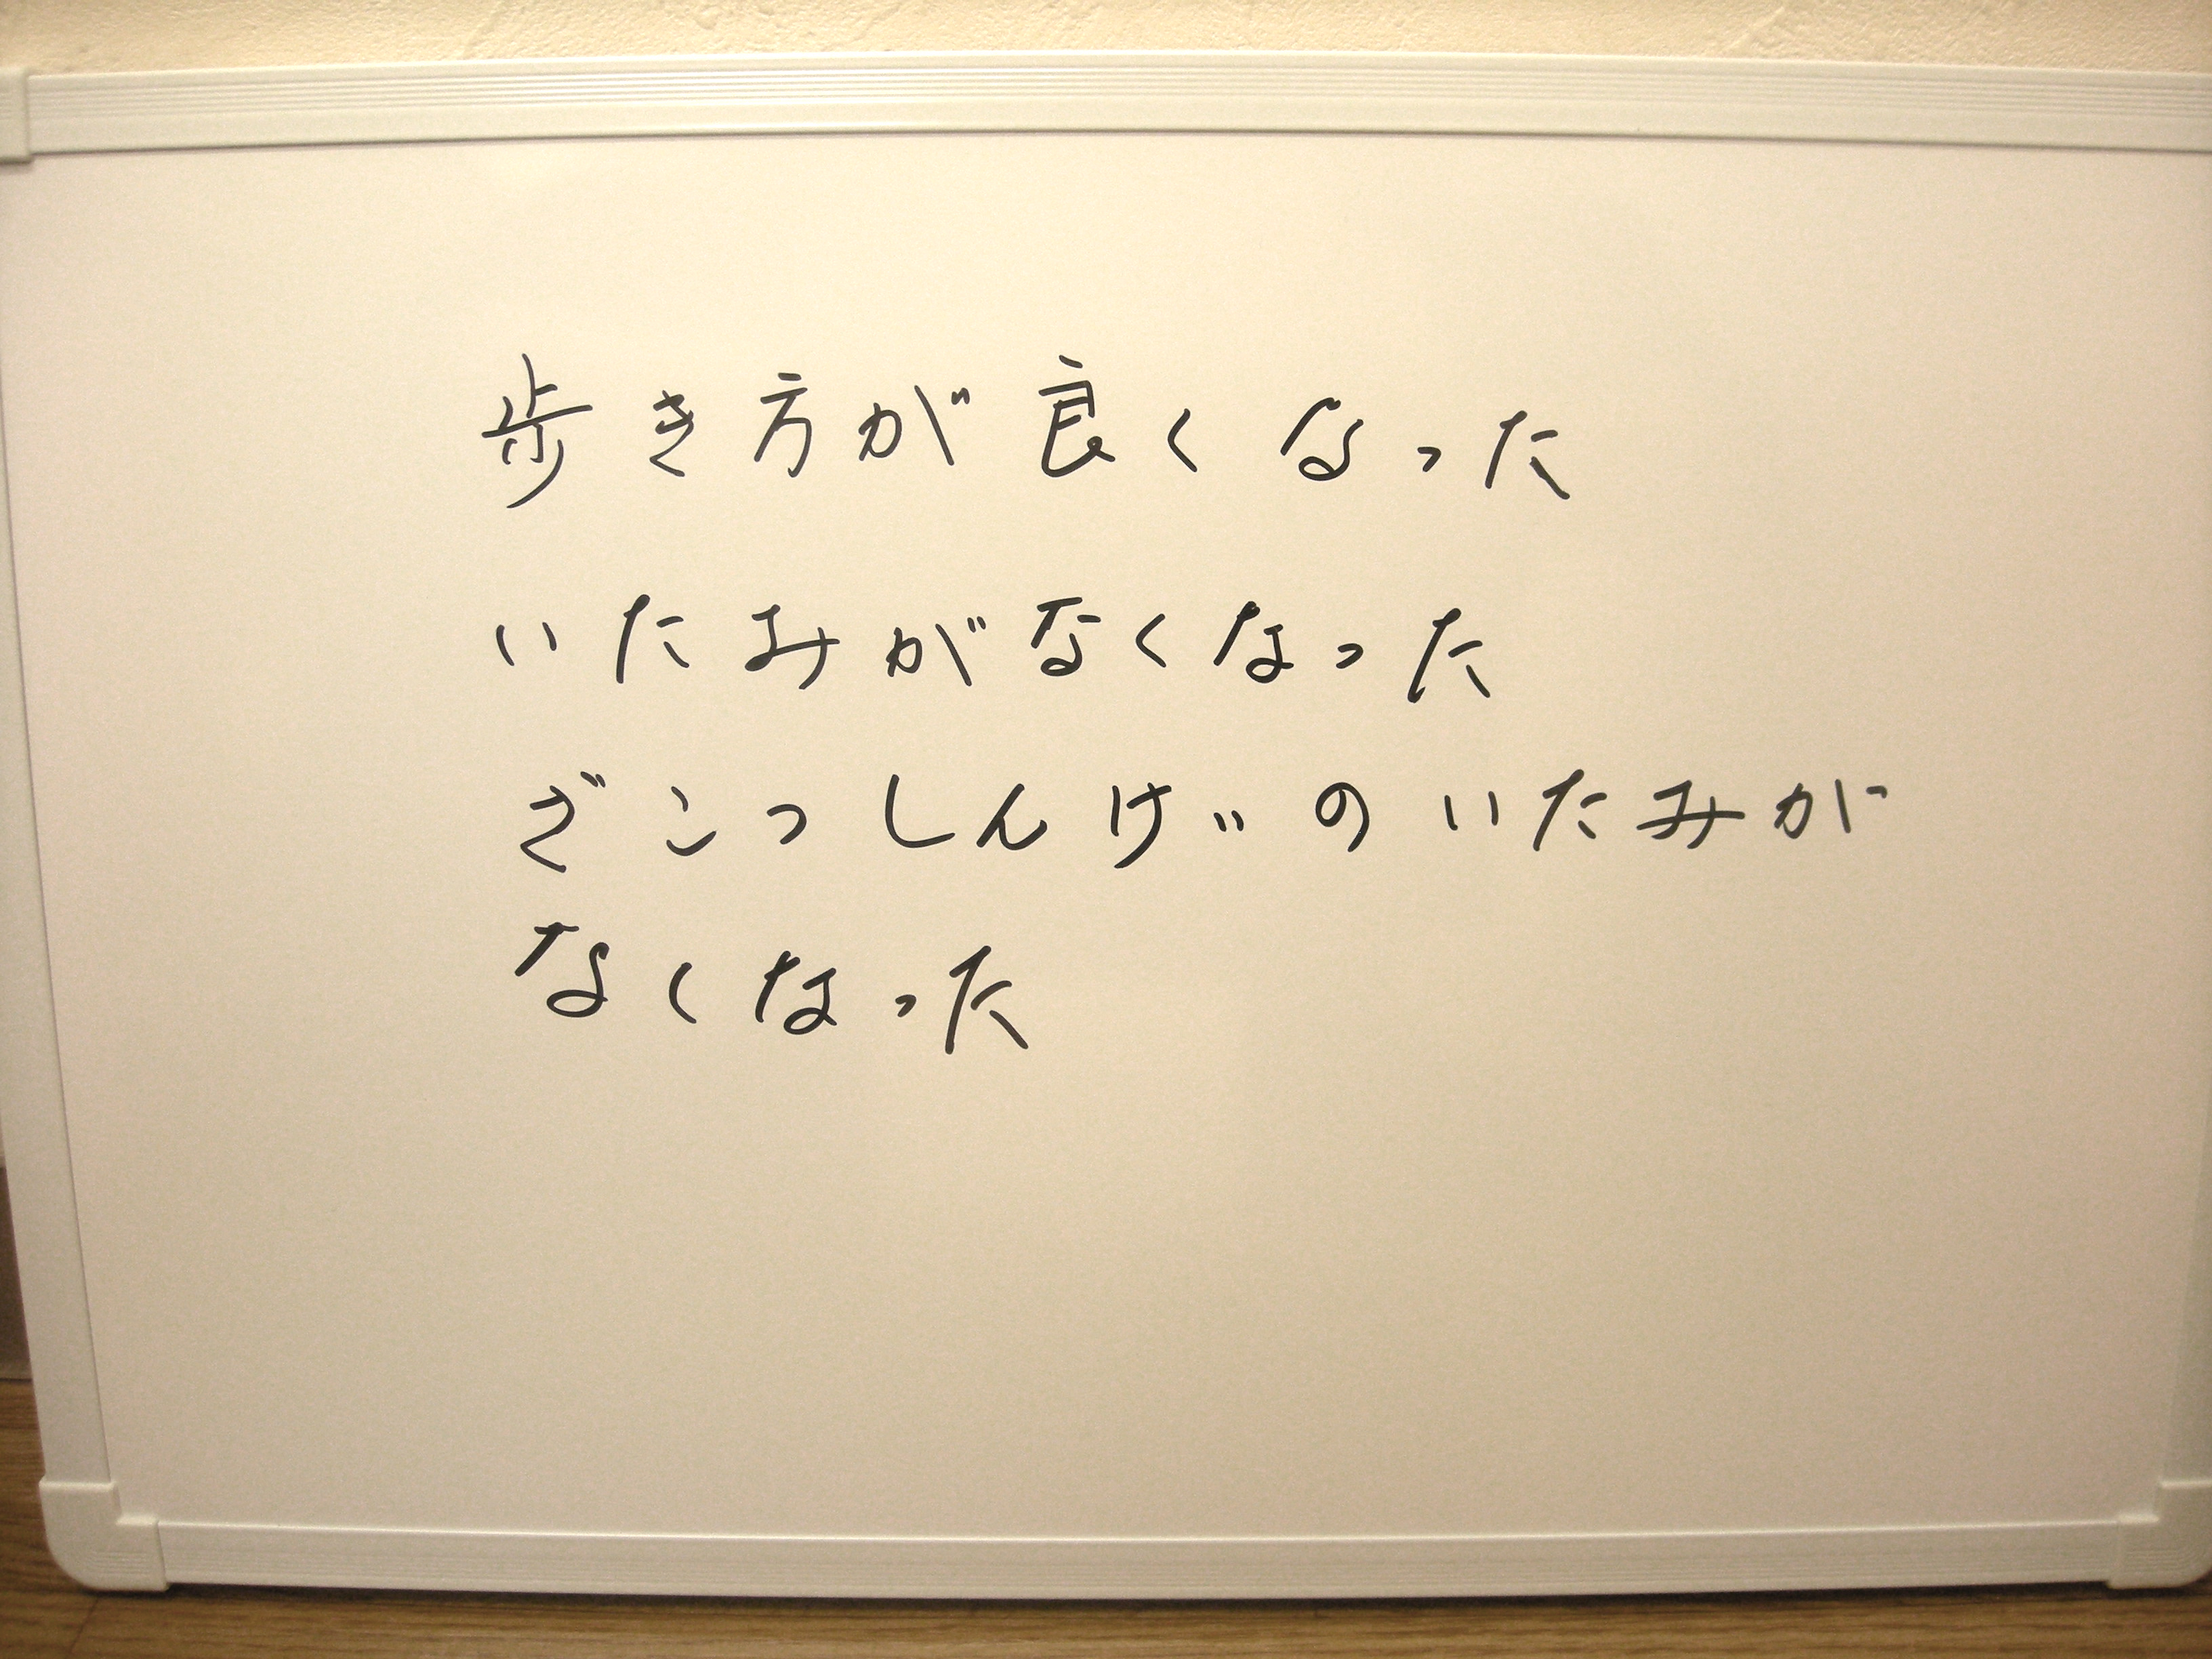 歩き方が良くなった
いたみがなくなった
ざこつしんげいのいたみが
なくなった